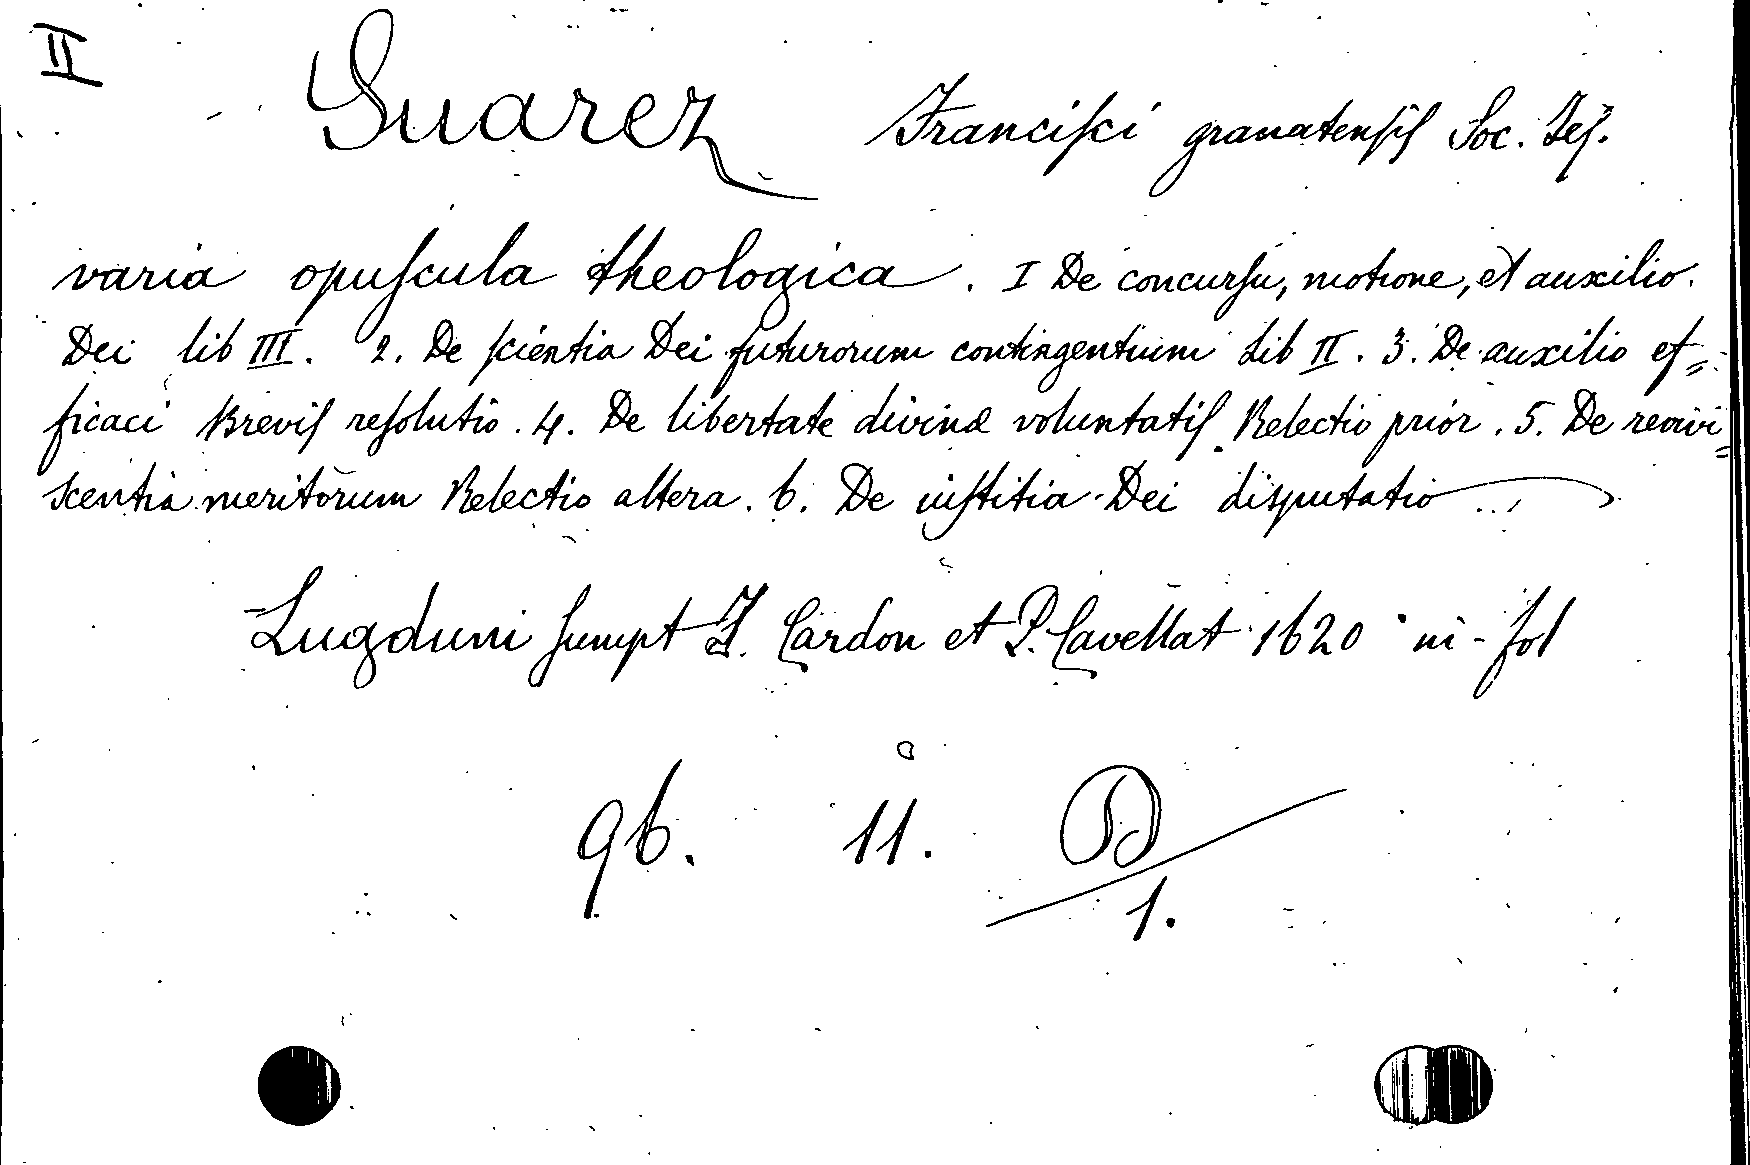 II
Suarez Franciſci granatenſiſ Soc. Jeſ.
varia opuſcula theologica. I De concurſu, motione, et auxilio.
Dei lib III. 2. De ſcientia Dei futurorum contingentium Lib II. 3. De auxilio ef=
ficaci Breviſ reſolutio. 4. De libertate divinæ voluntatiſ Relectio prior. 5. De revivi=
scentia meritorum Relectio altera. 6. De iuſtitia Dei disputatio
Lugduni ſumpt J. Cardon et P. Cavellat 1620 in-fol
96. 11. D/1.